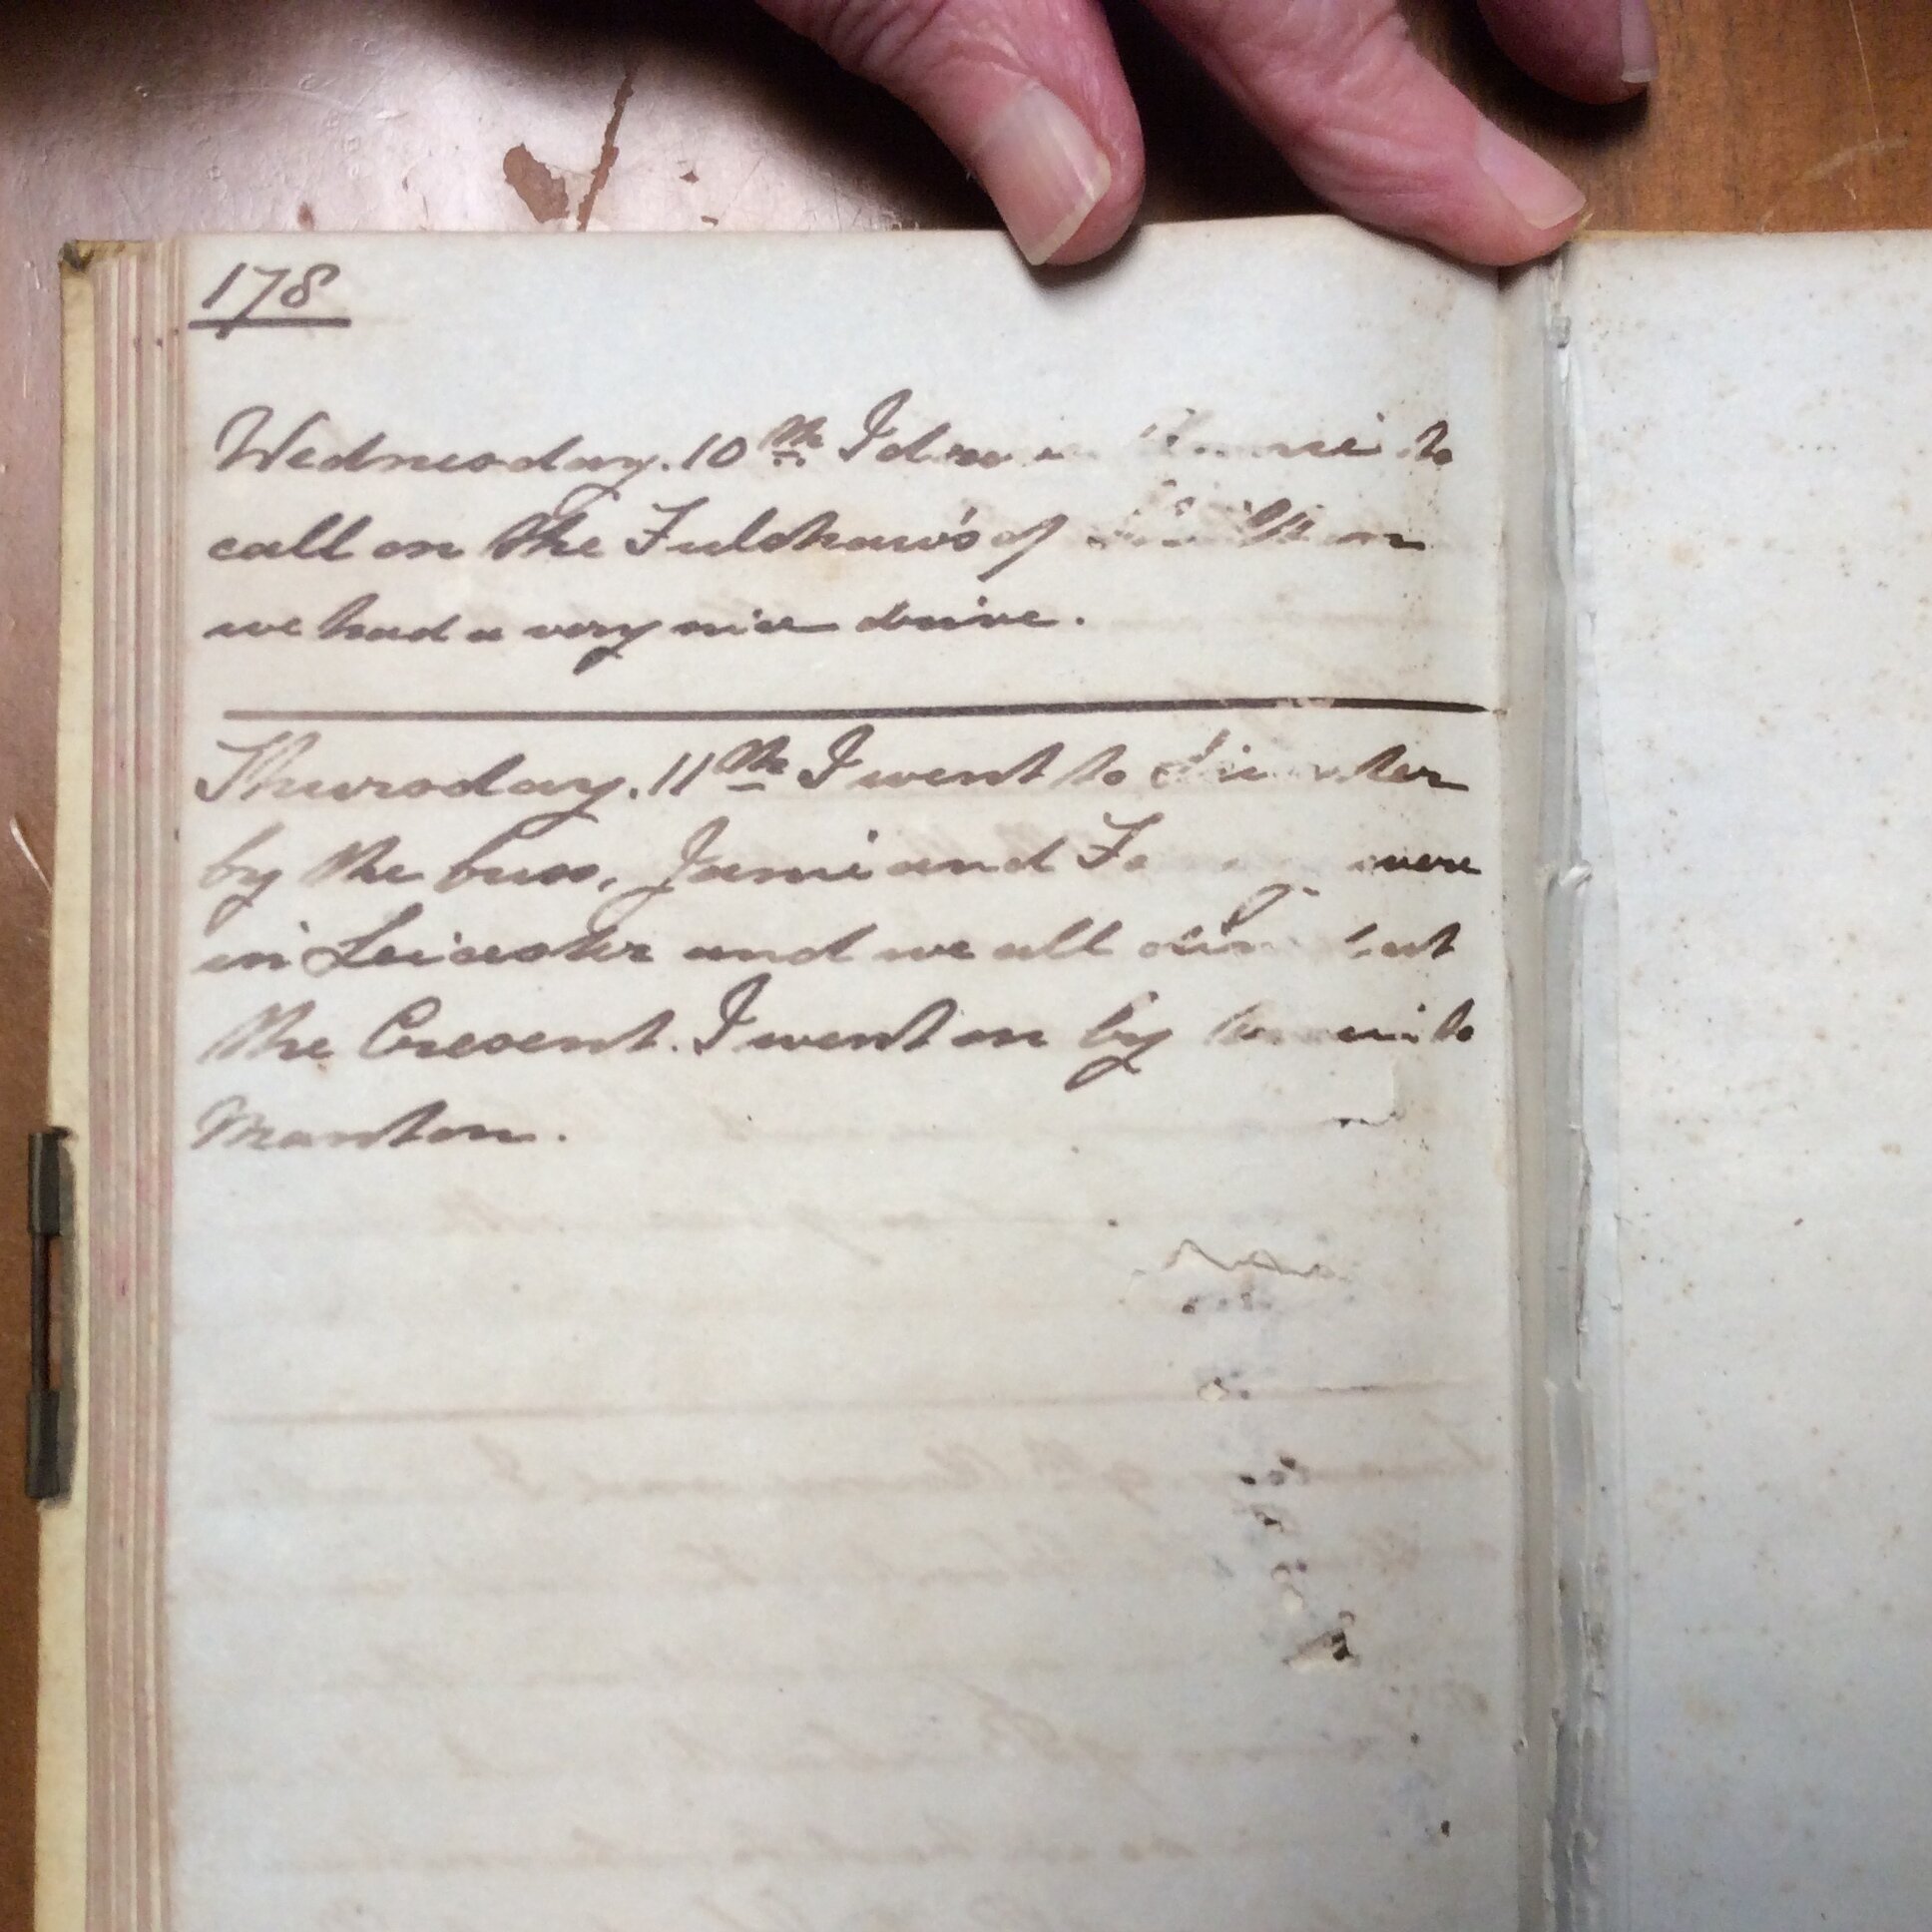 178
Wednesday. 10th I drove to
call on the Fulshaw's of
we had a very nice drive.
Thursday. 11th I went to
by the buss, Jamie and were
in Leicester and we all at
the Cresent. I went on by to
Manton.